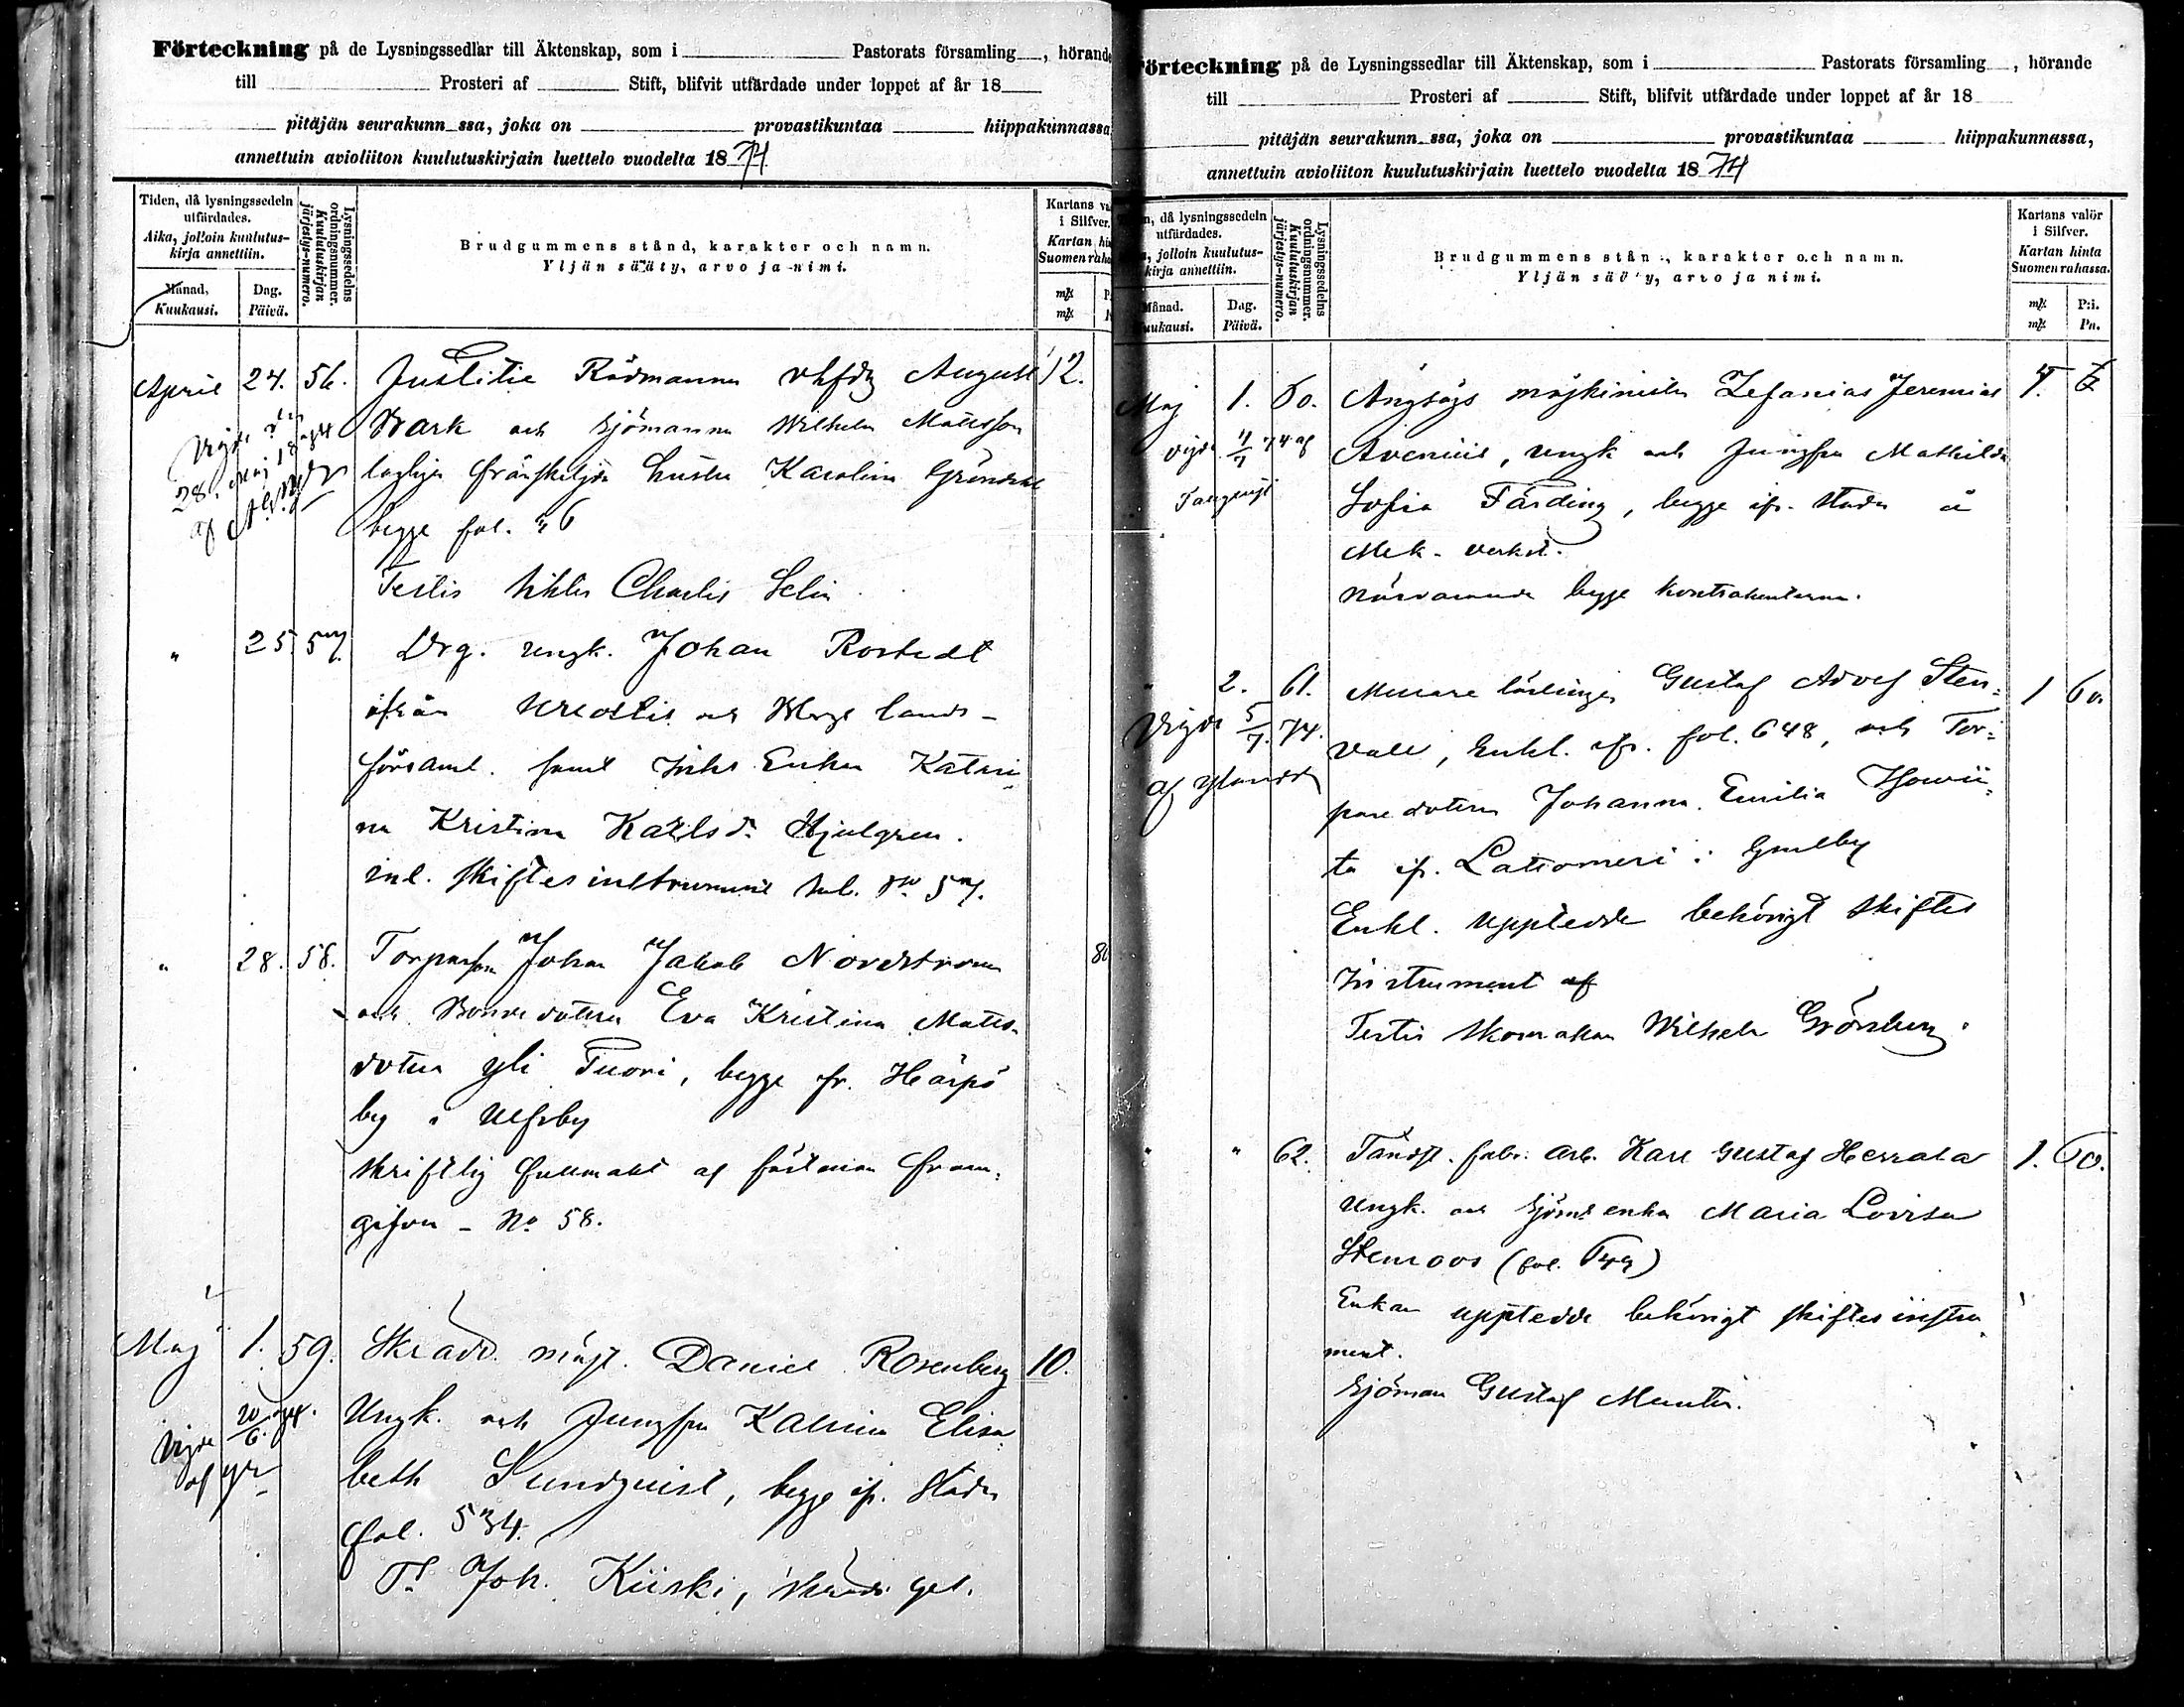 Förteckning på de Lysningssedlar till Äktenskap, som i Pastorats församling, hörande
till Prosteri af Stift, blifvit utfärdade under loppet af år 18
pitäjän seurakunn ssa, joka on provastikuntaa hiippakunnassa
annettuin avioliiton kuulutuskirjain luettelo vuodelta 1874
Tiden, då lysningssedeln utfärdades.
Aika, jolloin kuulutus-
kirja annettiin.
Månad,
Kuukausi.
Dag.
Päivä.
Lysningssedelns
ordningsnummer.
Kuulutuskirjan
järjestys-numero.
Brudgummens stånd, karakter och namn.
Yljän sääty, arvo ja nimi.
Kartans
i Silfver.
Kartan
Suomen
April 24. 56. Justitie Rådmannen August 12.
Wark och Sjömannen Wilhelm Mattsson
lagligen frånskiljda hustru Karolina
begge fol. 46
Vigde den
28. Maj 1874
af
Testis Charles Selin
" 25. 57. Drg. ungk. Johan Rostedt
ifrån och lands-
församl. samt Enkan Katari
na Kristina Karlsd. Hjulgren.
inl. skiftesinstrument No 57.
" 28. 58. Torparson Johan Jakob Nordström 80
och Bondedottren Eva Kristina Matts-
dotter Yli Tuori, begge fr. Härpö
by i Ulfsby
skriftlig fullmakt af fästman fram-
gifven - No 58.
Maj 1. 59. Skrädd. mäst. Daniel Rosenberg 10.
Ungk. och Jungfru Karolina Elisa
beth Sundquist, begge ifr. staden
fol. 534.
Vigde 20/6. 74.
af
Ts Joh. Kiiski, gesl.
Förteckning på de Lysningssedlar till Äktenskap, som i Pastorats församling, hörande
till Prosteri af Stift, blifvit utfärdade under loppet af år 18
pitäjän seurakunn ssa, joka on provastikuntaa hiippakunnassa,
annettuin avioliiton kuulutuskirjain luettelo vuodelta 1874
då lysningssedeln
utfärdades.
jolloin kuulutus-
kirja annettiin.
Månad.
Kuukausi.
Dag.
Päivä.
Lysningssedelns
ordningsnummer.
Kuulutuskirjan
järjestys-numero.
Brudgummens stånd, karakter och namn.
Yljän sääty, arvo ja nimi.
Kartans valör
i Silfver.
Kartan hinta
Suomen rahassa.
mk P:i.
mk Pn.
Maj 1. 60. Ångsågs maskinisten Zefanias Jeremias
Avenius, ungk och Jungfru Mathilda
Sofia Färding, begge ifr. staden å
Mek. verkst.
närvarande begge kontrahenterna.
vigde 74 af
" 2. 61. Murare lärlingen Gustaf Adolf Sten- 1 60.
vall, Enkl. ifr. fol. 648, och Tor-
paredottern Johanna Emilia
ta ifr. Lattomeri i Gammelby
Enkl. uppteddde behörigt skiftes
Instrument af
Testis Skomakare Wilhelm Grönberg.
Vigde 5/7. 74.
af
" " 62. Tändst. fabr. arb. Karl Gustaf Herrala 1. 60.
Ungk. och Sjömsenkan Maria Lovisa
Stenroos (fol.
Enkan uppteddde behörigt skiftesinstru
ment.
Sjöman Gustaf Munter.